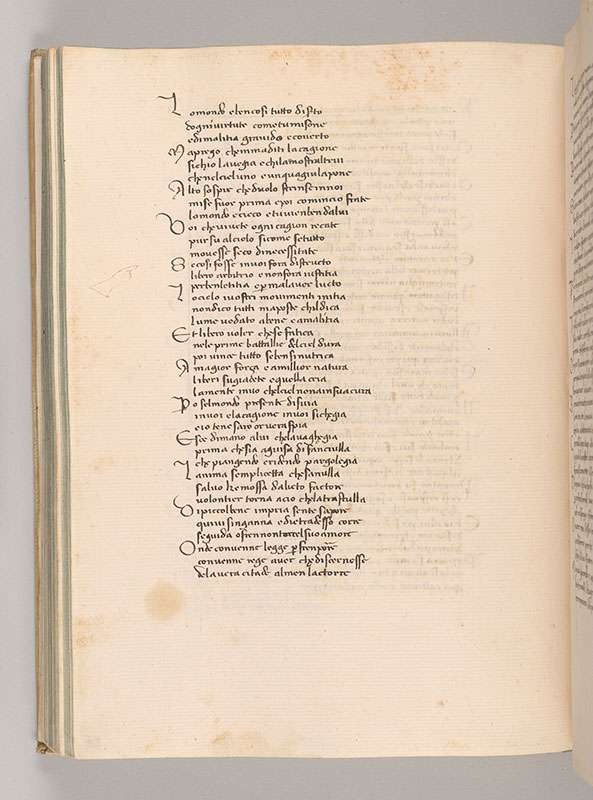 Lo mondo e ben cosi tutto diserto
dogni virtute come tu mi sone
e di malitia gravido e coverto
Ma prego che maditi la cagione
si chio la vegia e chi la mostri altrui
che nel ciel uno e un qua giu la pone
Alto sospir che duolo strinse in noi
mise fuor prima e poi comincio frate
lo mondo e cieco e tu vien ben da lui
Voi che vivete ogni cagion recate
pur su al cielo si come se tutto
movesse seco di necessitate
Se cosi fosse in voi fora distructo
libero arbitrio e non fora iustitia
per ben letitia e per mal aver lucto
Lo cielo i vostri movimenti initia
non dico tutti ma poste chil dica
lume vo dato a bene e a malitia
Et libero voler che se fatica
nele prime battallie del ciel dura
poi vince tutto se ben si nutrica
A magior força e a millior natura
liberi sugiacete e quella cria
la mente in voi chel ciel non a in sua cura
Po sel mondo presente disvia
in voi e la cagione in voi si chegia
e io te nesaro or vera spia
Esce di mano a lui che la vaghegia
prima che sia a guisa di fanciulla
che piangendo e ridendo pargolegia
Lanima semplicetta che sa nulla
salvo che mossa da lieto factore
volontier torna acio che la trastulla
Di piccol bene impria sente sapore
quivi singanna e dietro adesso corre
se guida o fren non torce el suo amore
Onde convenne legge per fren porre
convenne rege aver che discernesse
de la vera citade almen la torre